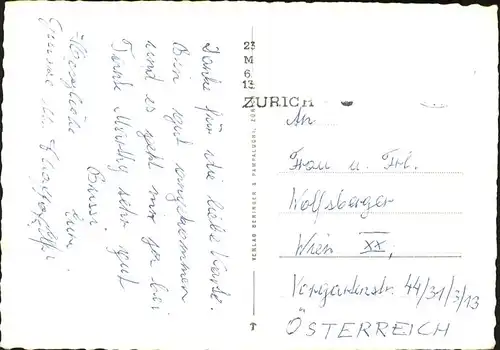 Danke für die liebe Karte.
Bin gut angekommen
und es geht mir ja bei
Tante sehr gut
Bussi
Eure
Herzliche
Grüsse
VERLAG BERINGER & PAMPALUCHI, ZÜR
23
M
6
13
ZURICH
An
Frau u. Frl.
Wolfsberger
Wien XX,
Vorgartenstr. 44/31/3/13
ÖSTERREICH